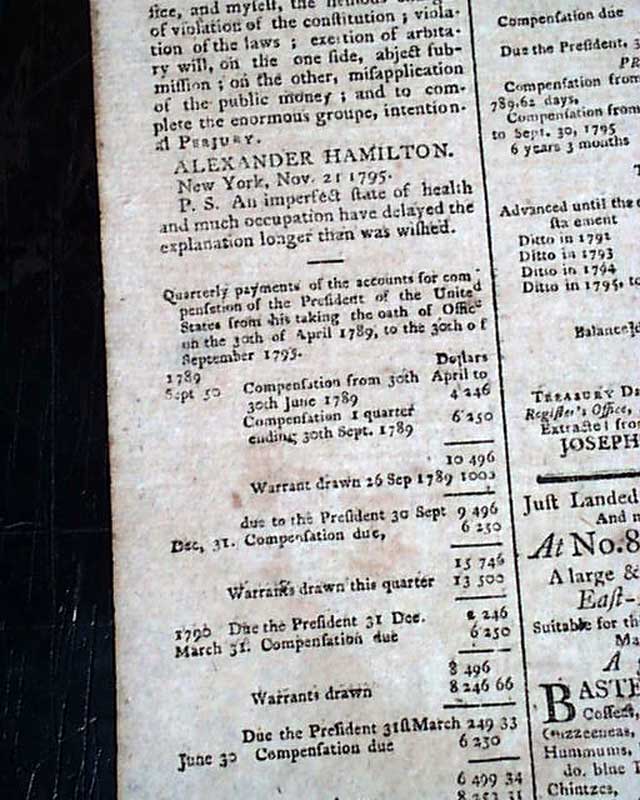 fice, and myself, the
of violation of the constitution ; viola-
tion of the laws ; exertion of arbita-
ry will, on the one side, abject sub-
mission ; on the other, misapplication
of the public money ; and to com-
plete the enormous groupe, intention-
al PERJURY.
ALEXANDER HAMILTON.
New York, Nov. 21 1795.
P. S. An imperfect state of health
and much occupation have delayed the
explanation longer than was wished.
Quarterly payments of the accounts for com-
pensation of the President of the United
States from his taking the oath of Office
on the 30th of April 1789, to the 30th of
September 1795.
1789 Dollars
Sept 30 Compensation from 30th April to
30th June 1789 4 246
Compensation 1 quarter
ending 30th Sept. 1789 6 250
10 496
Warrant drawn 26 Sep 1789 1000
due to the President 30 Sept 9 496
Dec, 31. Compensation due, 6 250
15 746
Warrants drawn this quarter 13 500
1790 Due the President 31 Dec. 2 246
March 31. Compensation due 6 250
8 496
Warrants drawn 8 246 66
Due the President 31st March 249 33
June 30 Compensation due 6 250
6 499 34
Compensation due
Due the President, 3
Compensation from
789,62 days,
Compensation from
to Sept. 30, 1795
6 years 3 months
Advanced until the
sta ement
Ditto in 1792
Ditto in 1793
Ditto in 1794
Ditto in 1795, to
Balance
TREASURY
Register's Office,
Extracted from
JOSEPH
Just Landed
And
At No. 8
A large &
East-
Suitable for
A
BASTE
Cossees,
Guzzeenas,
Hummums,
do. blue
Chintzes,